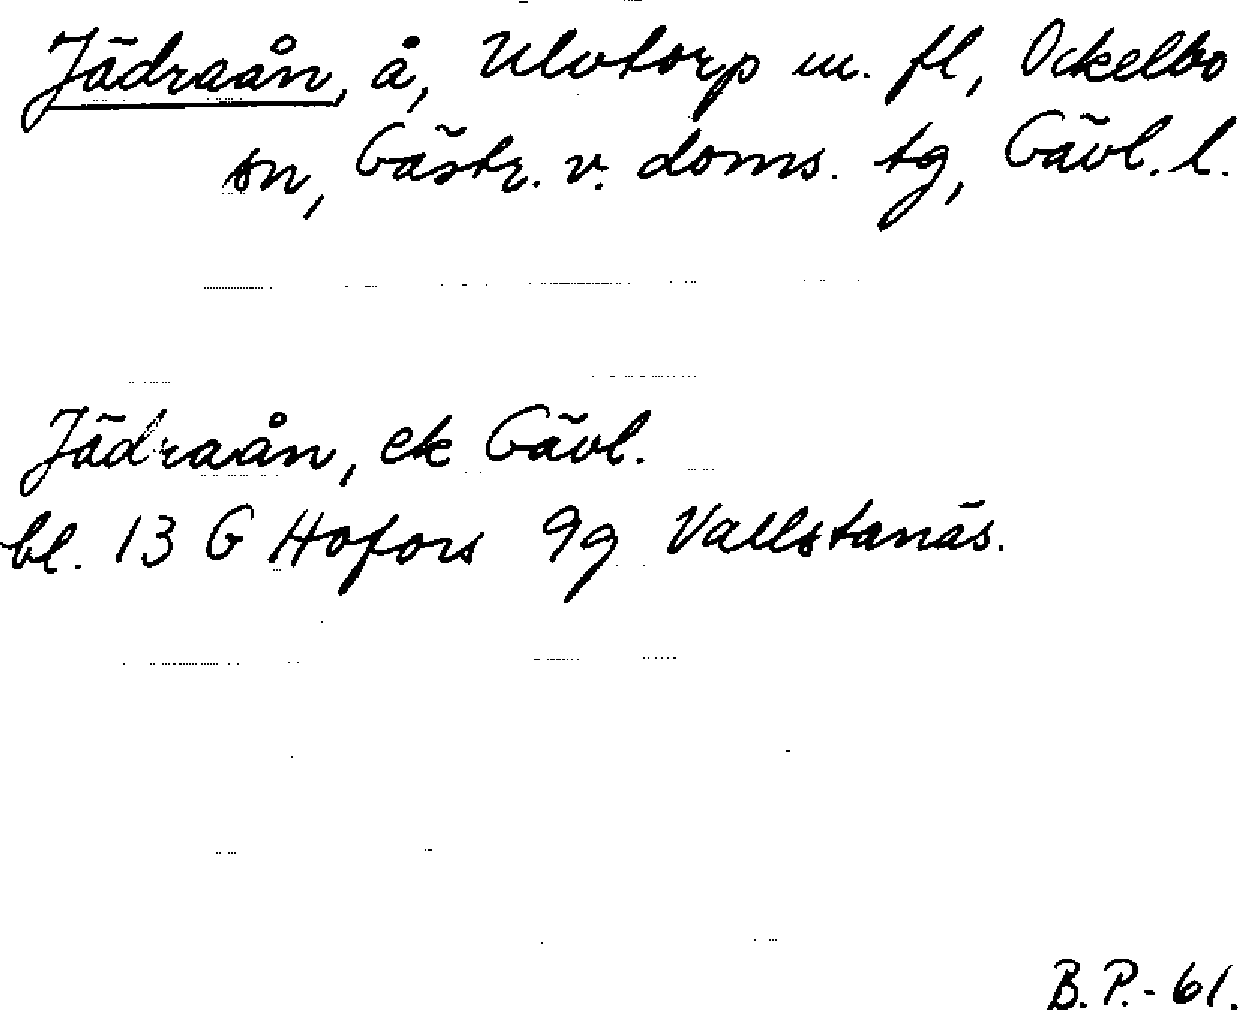 Jädraån, å, Ulvtorp m. fl, Ockelbo
sn, Gästr. v. doms. tg, Gävl. l.
Jädraån, ek Gävl.
bl. 13 G Hofors 9g Vallstanäs.
B. P. - 61.